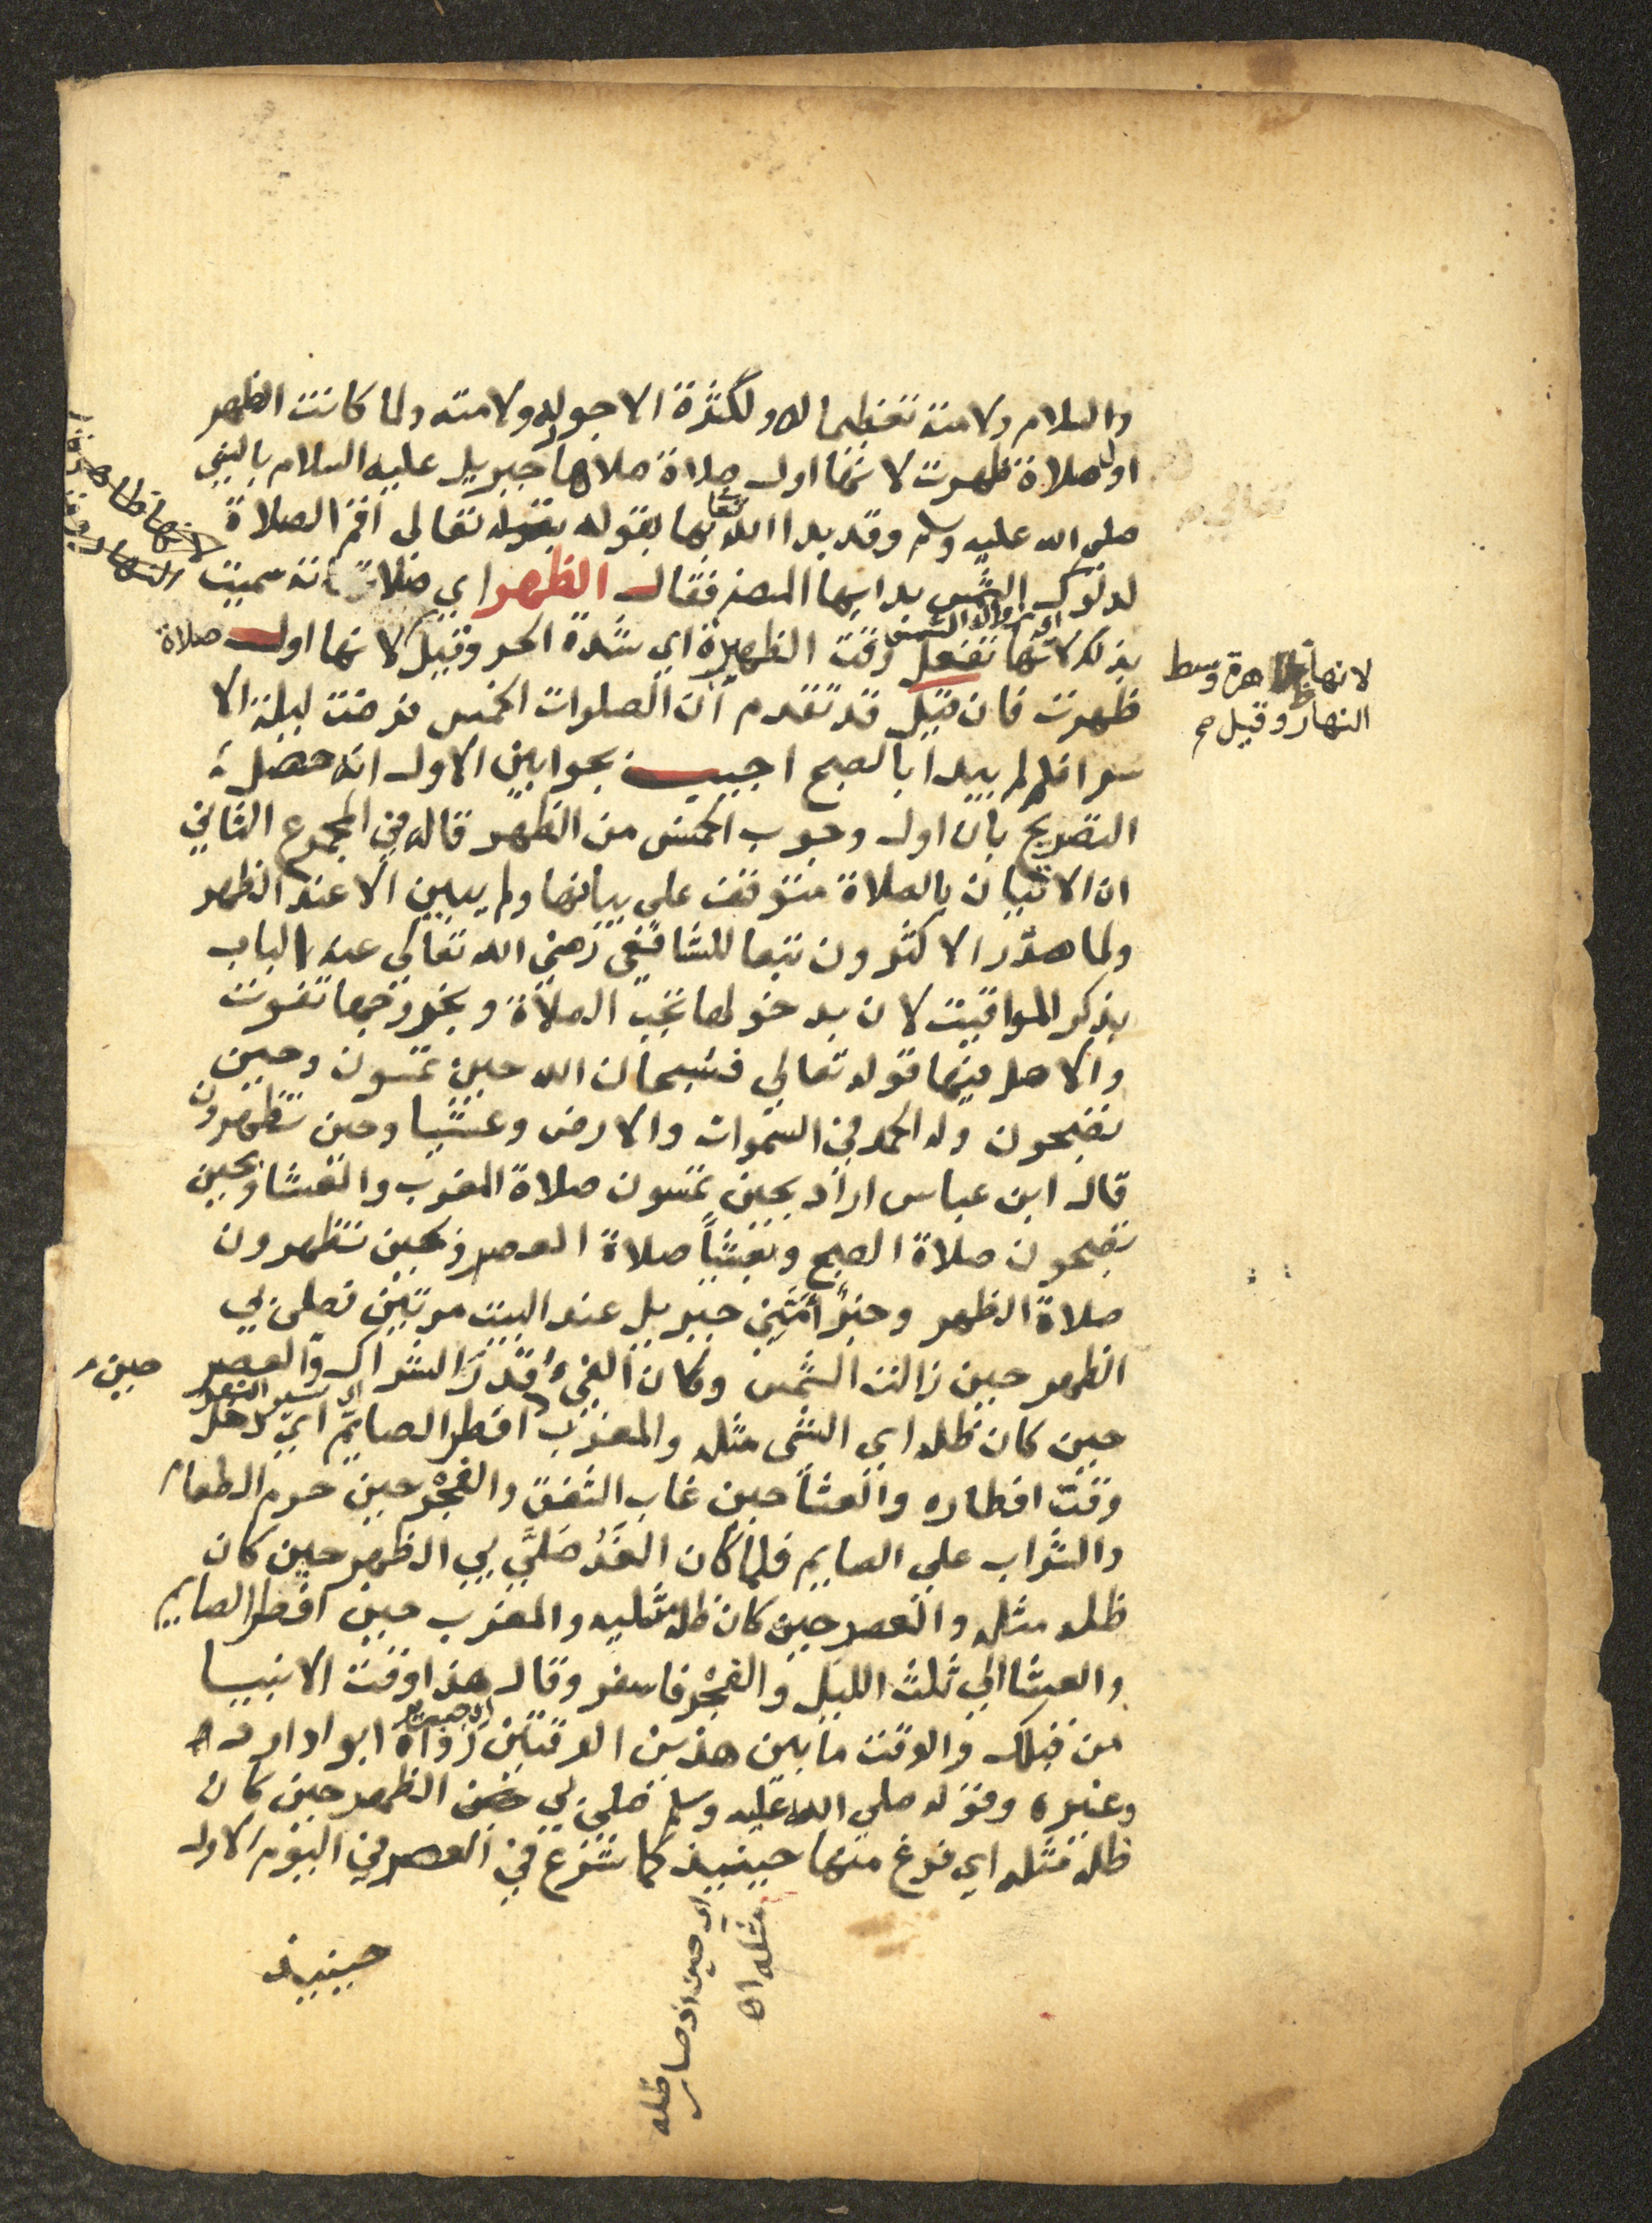 والسلام ولامته تعظيما له ولكثرة الاجور له ولامته ولما كانت الظهر
اول صلاة ظهرت لانها اول صلاة صلاها جبريل عليه السلام بالنبي
صلى الله عليه وسلم وقد بدا الله تعالى بها بقوله تعالى اقم الصلاة
لدلوك الشمس بدا بها المصنف فقال الظهر اي صلاته سميت
بذلك لانها تفعل وقت الظهيرة اي شدة الحر وقيل لانها اول صلاة
اي زوال الشمس
لانها ظاهرة وسط
النهار وقيل صح
ظهرت فان قيل قد تقدم ان الصلوات الخمس فرضت ليلة الا
سرا فلم لم يبدا بالصبح اجيب بجوابين الاول انه حصل
التصريح بان اول وجوب الخمس من الظهر قاله في المجموع الثاني
ان الاتيان بالصلاة متوقف على بيانها ولم يبين الا عند الظهر
ولما صدر الاكثرون تبعا للشافعي رضي الله تعالى عنه الباب
بذكر المواقيت لان بدخولها تجب الصلاة وبخروجها تفوت
والاصل فيها قوله تعالى فسبحان الله حين تمسون وحين
تصبحون وله الحمد في السموات والارض وعشيا وحين تظهرون
قال ابن عباس اراد بحين تمسون صلاة المغرب والعشا وبحين
تصبحون صلاة الصبح وبعشياً صلاة العصر وبحين تظهرون
صلاة الظهر وخبرُ أمّني جبريل عند البيت مرتين فصلى بي
الظهر حين زالت الشمس وكان الفيءُ قدرَ الشراك والعصر
حين
حين كان ظله اي الشي مثله والمغرب افطر الصايم اي دخل
وقت افطاره والعشاً حين غاب الشفق والفجر حين حرم الطعام
والشراب على الصايم فلما كان الغدُ صلَّى بي الظهر حين كان
ظله مثله والعصر حين كان ظله مثليه والمغرب حين افطر الصايم
والعشا الى ثلث الليل والفجر فاسفر وقال هذا وقت الانبيا
من قبلك والوقت ما بين هذين الوقتين رواه ابو داود
وغيره وقوله صلى الله عليه وسلم صلى بي الظهر حين كان
ظله مثله اي فرغ منها حينيذ كما شرع في العصر في اليوم الاول
حينيذ
اي حين اذ صار ظله
مثله اه